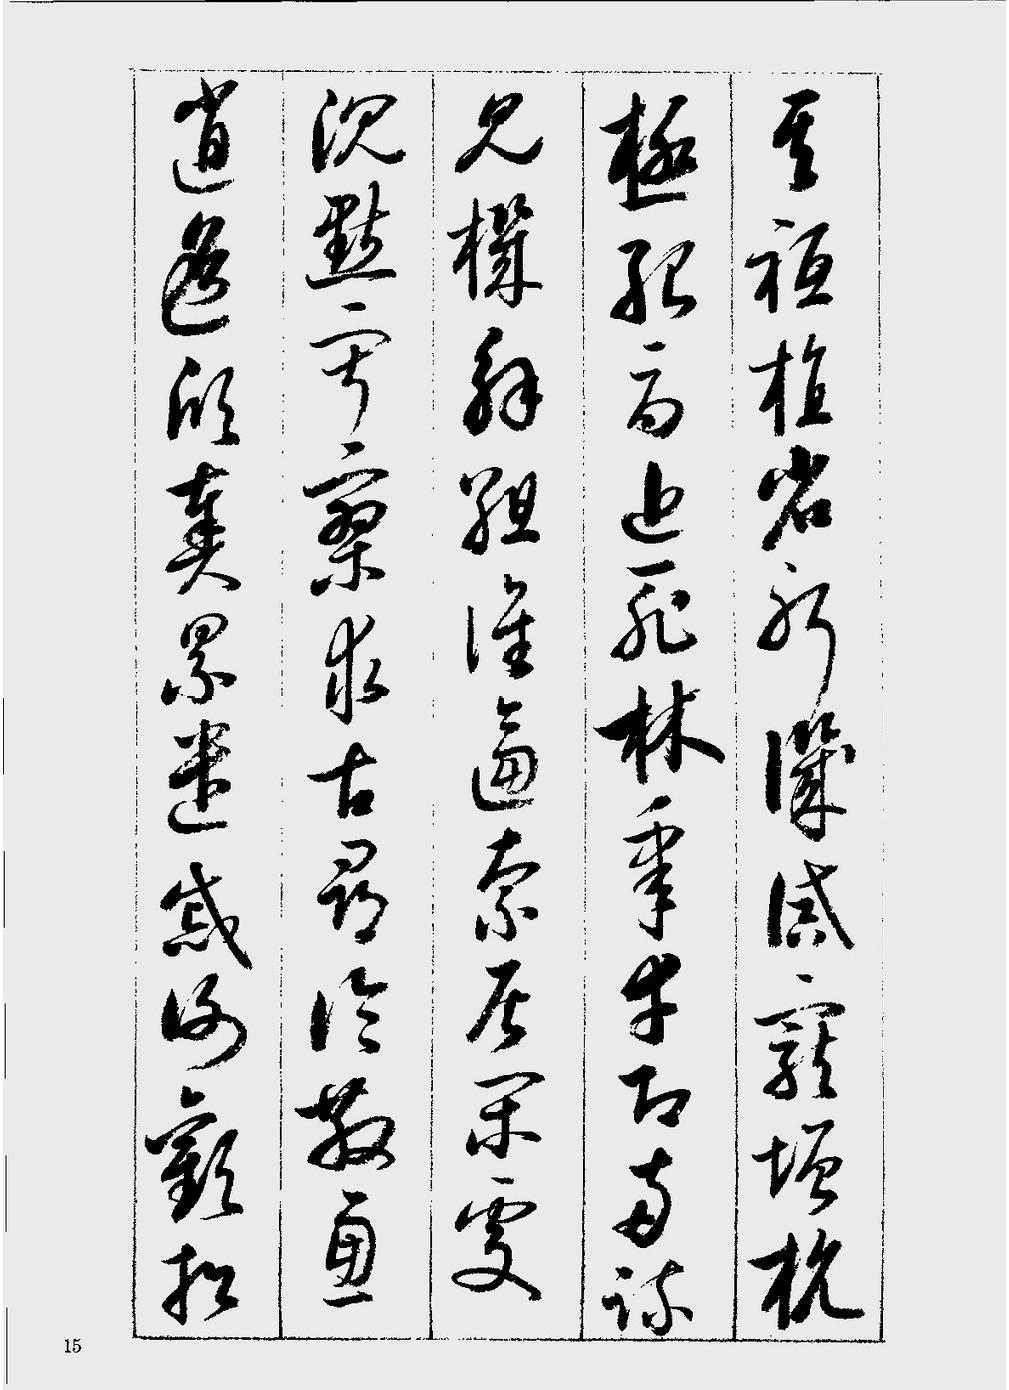 其祗植省躬譏誡寵增抗
極殆辱近恥林皋幸即兩疏
見機解組誰逼索居閑處
沉默寂寥求古尋論散慮
逍遙欣奏累遣慼謝歡招
15